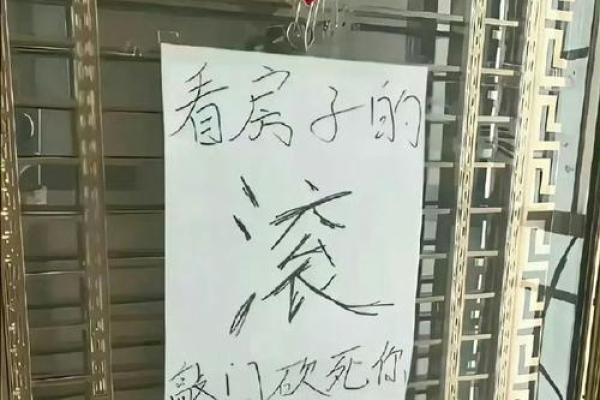 看房子的
滚
敲门砍死你